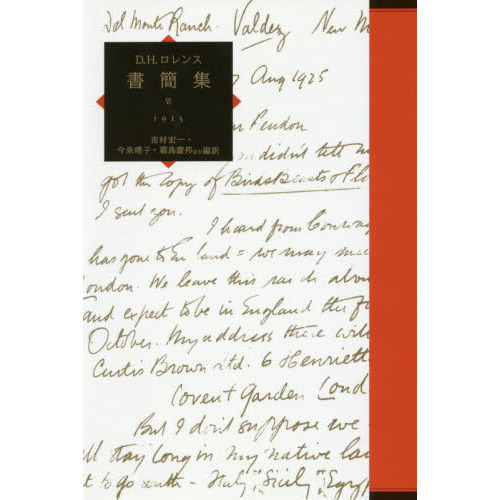 Del Monte Ranch. Valdez New M
D.H.ロレンス
書簡集
Ⅵ
1915
吉村宏一・
今泉晴子・霜鳥慶邦ほか編訳
Aug 1925
didn't tell m
got the copy of Birds Beasts & Flo
I sent you.
I heard from
has gone to England = we may
ondon. We leave this ranch abou
and expect to be in England the fi
October. My address there will
Curtis Brown Ltd. 6 Henriett
Covent Garden Lond
But I don't suppose we
ll stay long in my native lan
t to go south — Italy, Sicily, Egyp